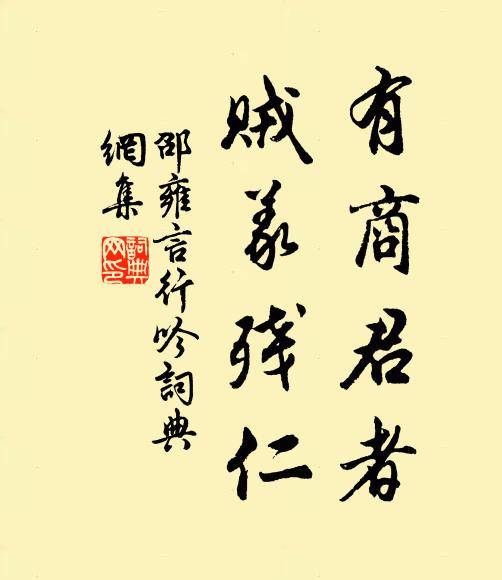 有商君者
賊義残仁
邵雍言行吟詞典
網集
詞典网印